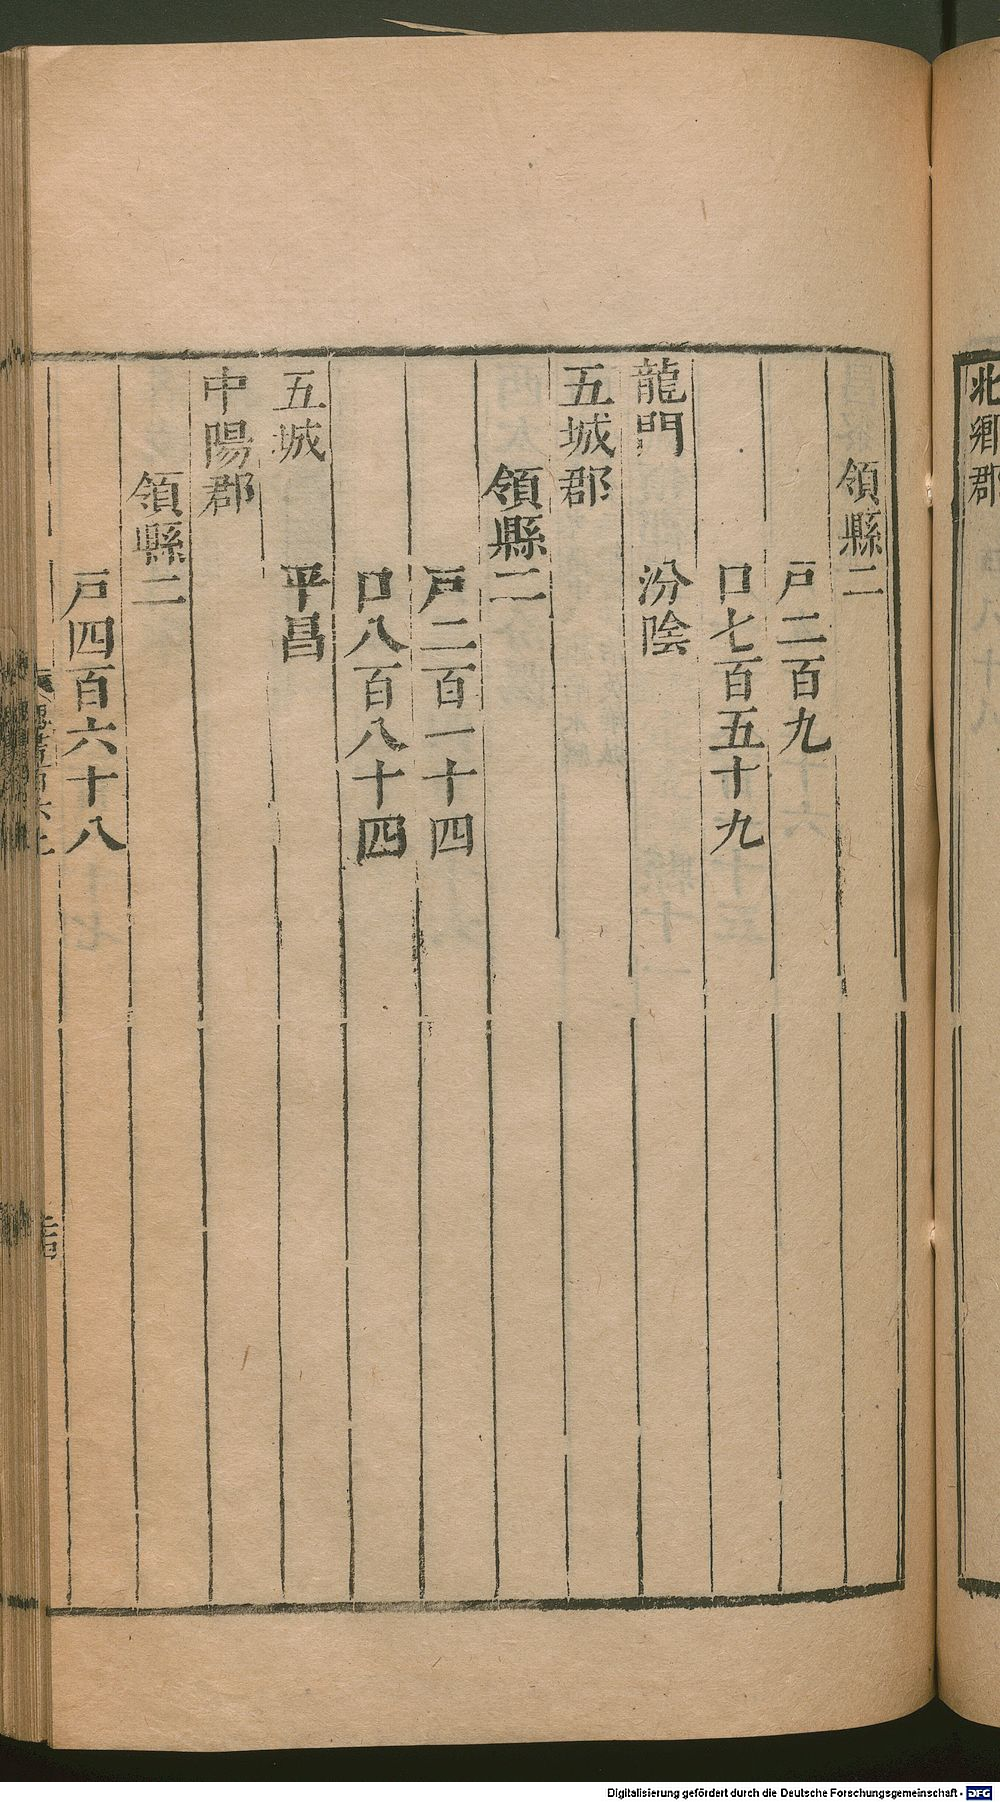 北鄉郡
領縣二
戶二百九
口七百五十九
龍門 汾陰
五城郡
領縣二
戶二百一十四
口八百八十四
五城 平昌
中陽郡
領縣二
戶四百六十八
Digitalisierung gefördert durch die Deutsche Forschungsgemeinschaft - DFG